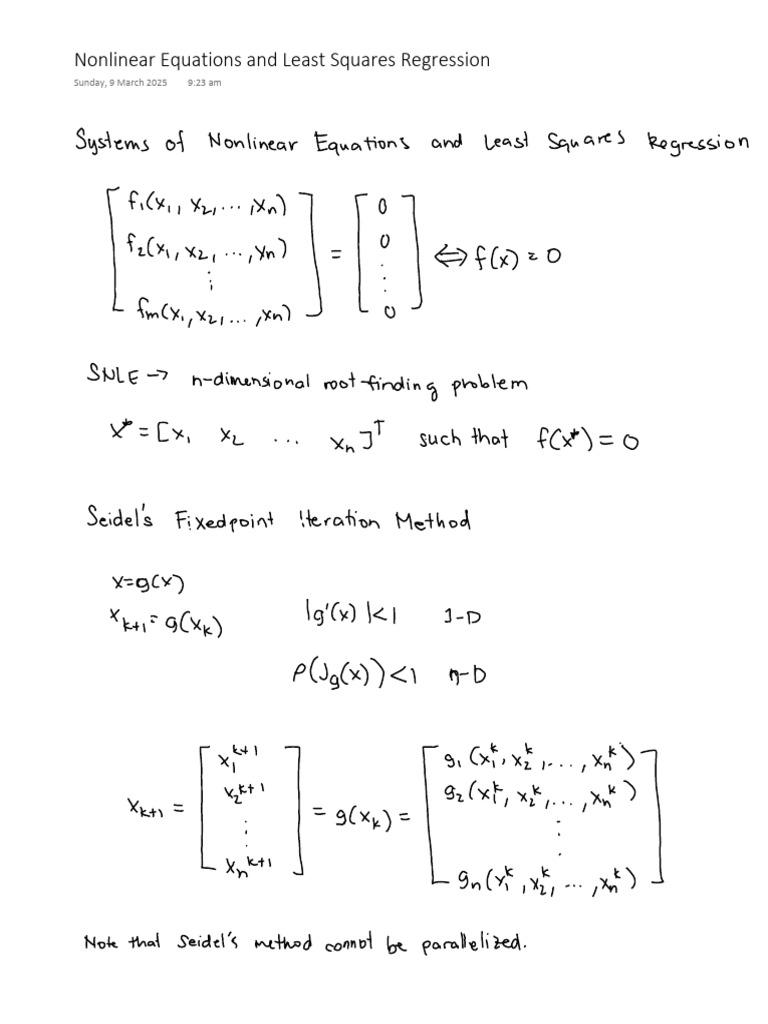 Nonlinear Equations and Least Squares Regression
Sunday, 9 March 2025 9:23 am
Systems of Nonlinear Equations and Least Squares Regression
[f₁(x₁, x₂, ..., xₙ)] = [0]
[f₂(x₁, x₂, ..., xₙ)] [0] ⇔ f(x) = 0
⋮ ⋮
[fₘ(x₁, x₂, ..., xₙ)] [0]
SNLE → n-dimensional root-finding problem
x* = [x₁ x₂ ... xₙ]ᵀ such that f(x*) = 0
Seidel's Fixedpoint Iteration Method
x = g(x)
xₖ₊₁ = g(xₖ) |g'(x)| < 1 1-D
ρ(J_g(x)) < 1 n-D
[x₁ᵏ⁺¹] [g₁(x₁ᵏ, x₂ᵏ, ..., xₙᵏ)]
xₖ₊₁ = [x₂ᵏ⁺¹] = g(xₖ) = [g₂(x₁ᵏ, x₂ᵏ, ..., xₙᵏ)]
⋮ ⋮
[xₙᵏ⁺¹] [gₙ(x₁ᵏ, x₂ᵏ, ..., xₙᵏ)]
Note that Seidel's method cannot be parallelized.